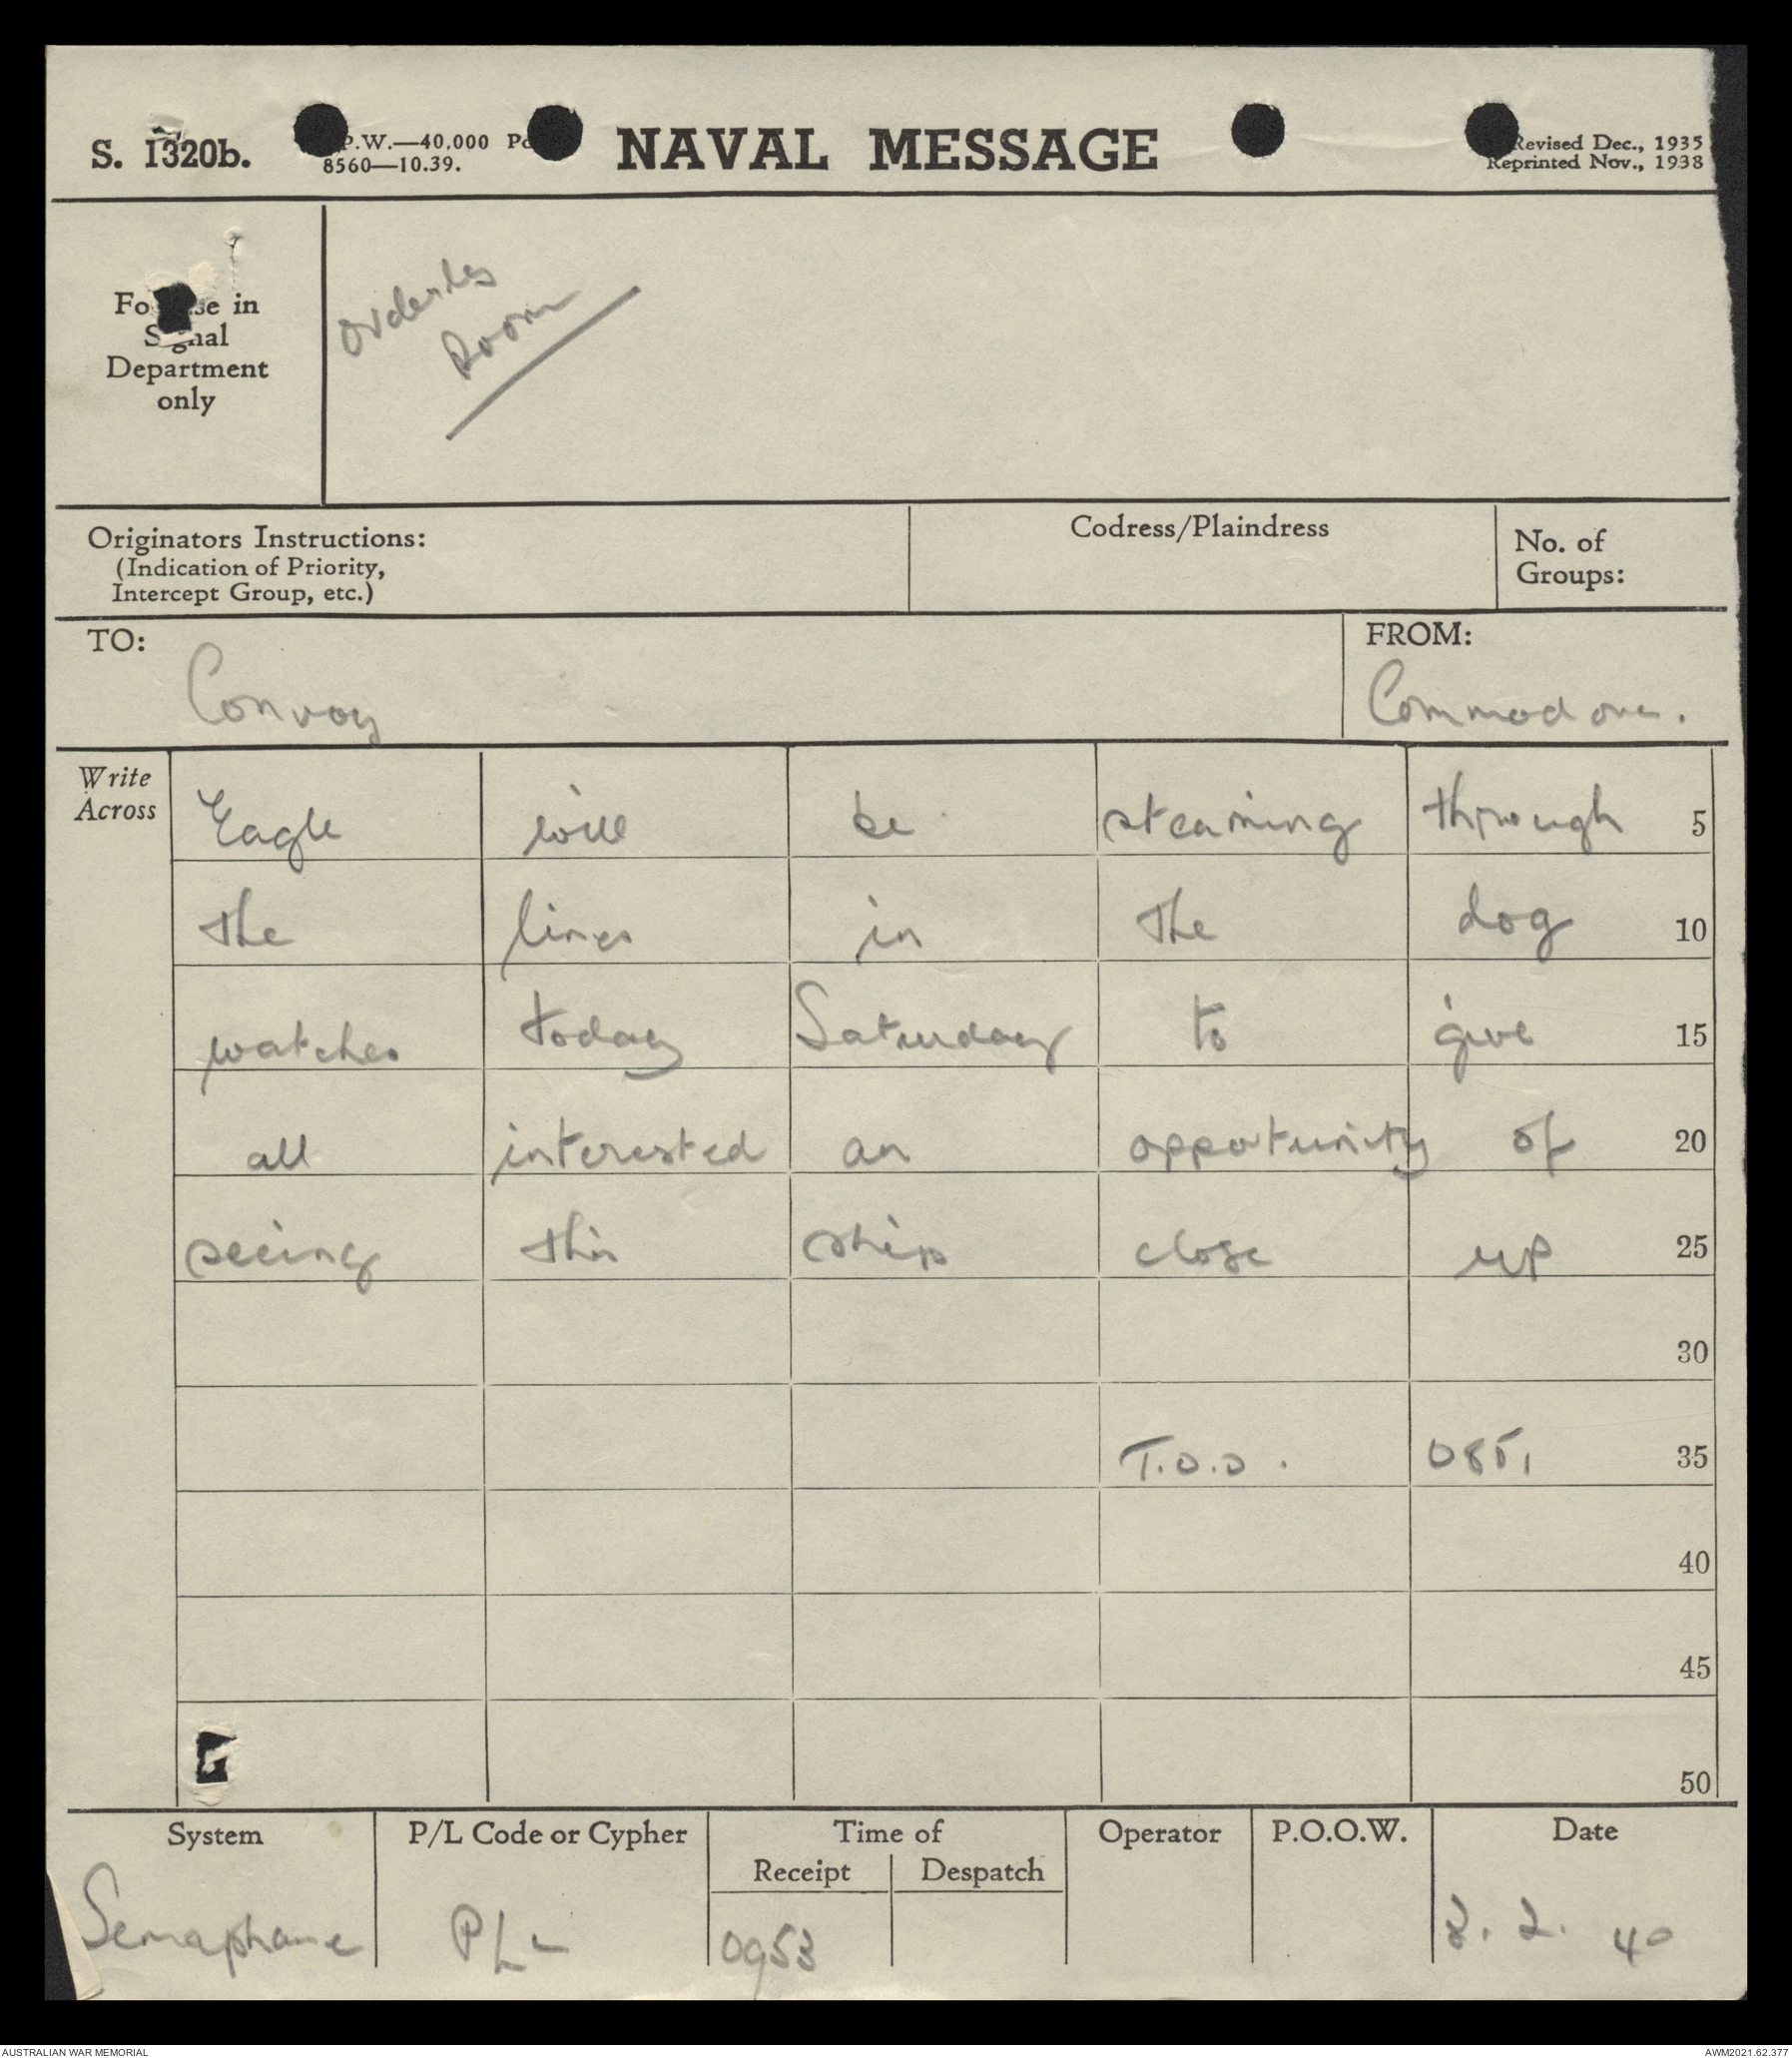 S. 1320b.
P.W.—40,000 P
8560—10.39.
NAVAL MESSAGE
Revised Dec., 1935
Reprinted Nov., 1938
For use in
Signal
Department
only
Room
Originators Instructions:
(Indication of Priority,
Intercept Group, etc.)
Codress/Plaindress
No. of
Groups:
TO:
Convoy
FROM:
Commodore.
Write
Across
Eagle will be steaming through 5
the lines in the dog 10
watches today Saturday to give 15
all interested an opportunity of 20
seeing this ship close up 25
30
T.O.O. 0851 35
40
45
50
System
P/L Code or Cypher
Time of
Receipt
Despatch
Operator
P.O.O.W.
Date
Semaphore
P/L
0953
2. 40
AUSTRALIAN WAR MEMORIAL
AWM2021.62.377